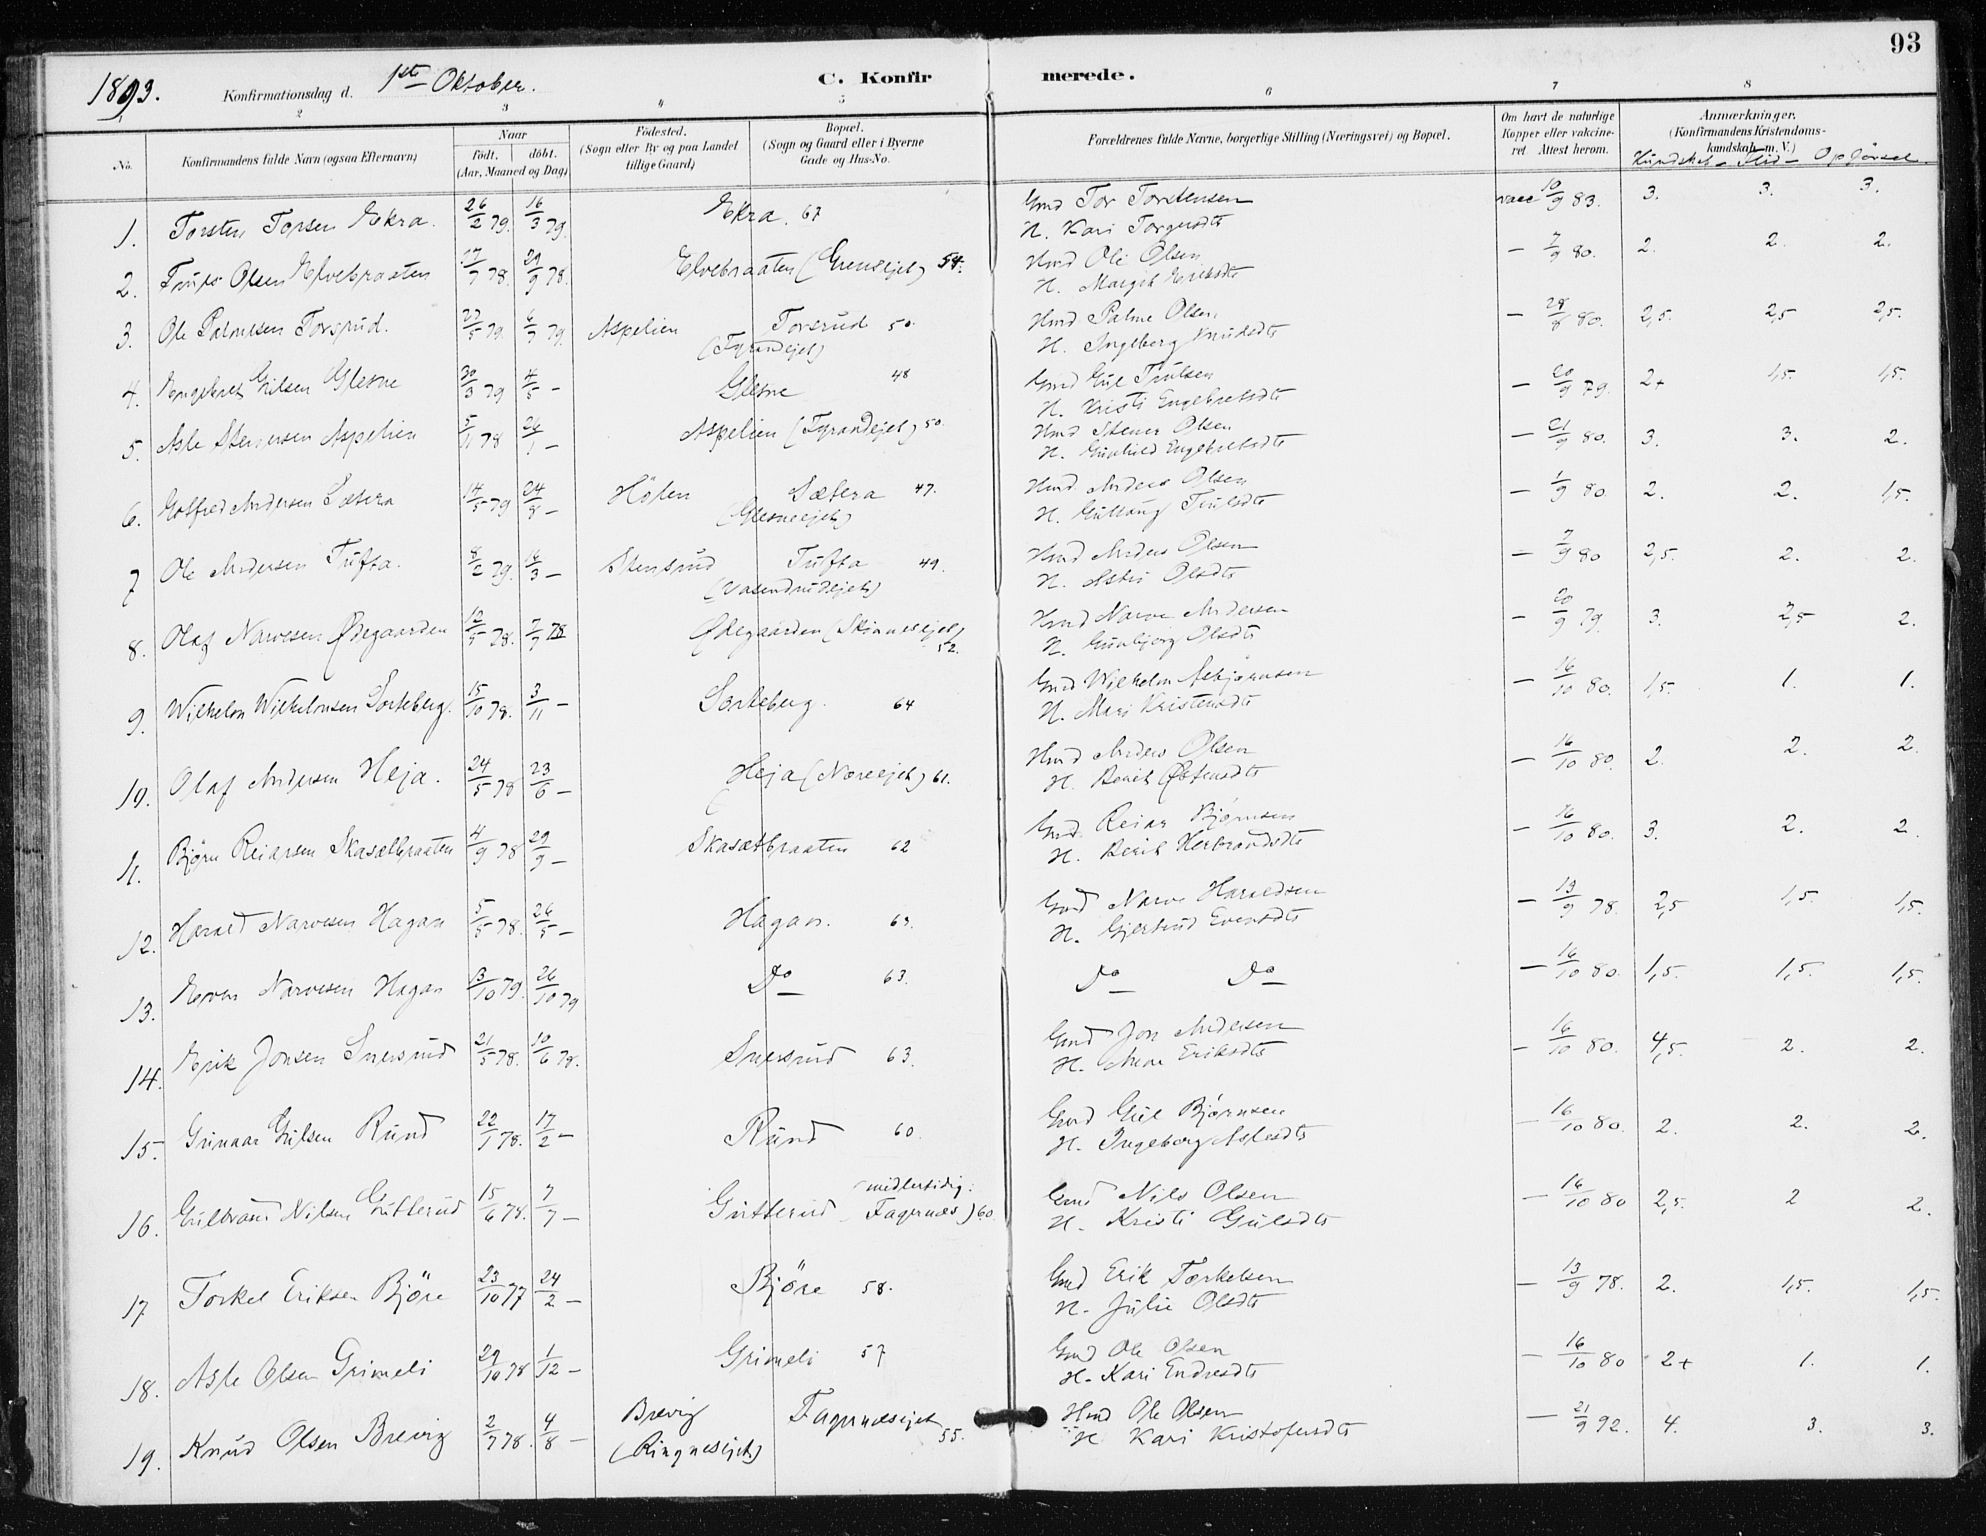 93
1893. Konfirmationsdag d. 1ste Oktober. C. Konfirmerede.
1 2 3 4 5 6 7 8
No. Konfirmandens fulde Navn (ogsaa Efternavn) Naar født. døbt. (Aar, Maaned og Dag) Fødested. (Sogn eller By og paa Landet tillige Gaard) Bopæl. (Sogn og Gaard eller i Byerne Gade og Hus-No. Forældrenes fulde Navne, borgerlige Stilling (Næringsvei) og Bopæl. Om havt de naturlige Kopper eller vaccineret Attest herom. Anmærkninger. (Konfirmandens Kristendomskundskab m. V.)
Kundskab – Flid – Opførsel.
1. Torsten Torsen Ekra. 26/2 79. 16/3 79. Ekra. 67 Gmd Tor Torstensen vacc 10/9 83. 3. 3. 3.
H. Kari Torgersdtr
2. Truls Olsen Elvebraaten 17/7 78. 29/9 78. Elvebraaten (Grensejet) 54. Hmd Ole Olsen – 7/9 80. 2. 2. 2.
H. Margit Eriksdtr
3. Ole Palmesen Torsrud. 27/5 79. 6/7 79. Aspelien Torsrud 50. Hmd Palme Olsen – 28/8 80. 2,5. 2,5 2,5.
(Tyrandejet) H. Ingeborg Knudsdtr
4. Engebret Gulsen Glesne 30/3 79 4/5 – Glesne 48 Gmd Gul Trulsen – 20/9 79. 2+ 1,5. 1,5.
H. Kristi Engebretsdtr
5. Asle Stenersen Aspelien 5/1 78 26/1 – Aspelien (Tyrandejet) 50. Hmd Stener Olsen – 21/9 80. 3. 3. 2.
H. Gunhild Engebretsdtr
6. Gotfred Andersen Sætera 14/5 79 24/8 – Høten Sætera 47. Hmd Anders Olsen – 1/9 80 2. 2. 1,5.
(Glesneejet) H. Trulsdtr
7 Ole Andersen Tufta. 8/2 79. 16/3 – Stensrud Tufta 49. Hmd Anders Olsen – 7/9 80 2,5. 2. 2.
(Vasendrudejet) H. Astri Olsdtr
8. Olaf Narvesen Ødegaarden 12/5 78. 7/7 78 Ødegaarden (Skinnesejet) 52. Hmd Narve Andersen – 20/9 79. 3. 2,5 2.
H. Gunbjørg Olsdtr
9. Wilhelm Wilhelmsen Sorteberg. 15/10 78. 3/11 – Sorteberg. 64 Gmd Wilhelm Asbjørnsen – 16/10 80. 1,5. 1. 1.
H. Mari Kristensdtr
10. Olaf Andersen Heja. 24/5 78 23/6 – Heja (Næreejet) 61. Hmd Anders Olsen – 16/10 80. 2. 2. 2.
H. Berit Østensdtr
11. Bjørn Reiarsen Skasætbraaten 4/9 78 29/9 – Skasætbraaten 62 Gmd. Reiar Bjørnsen – 16/10 80. 3. 2. 2.
H. Berit Herbrandsdtr
12. Harald Narvesen Hagan 5/5 78. 26/5 – Hagan. 63. Gmd Narve Haraldsen – 13/9 78. 2,5 1,5. 1,5.
H. Gjertrud Evensdtr
13. Even Narvesen Hagan 13/10 79. 26/10 79 Do 63. Do Do – 16/10 80. 1,5. 1,5. 1,5.
14. Erik Jonsen Snersrud 21/5 78. 10/6 78. Snersrud 63. Gmd Jon Andersen – 16/10 80. 4,5. 2. 2.
H. Anne Eriksdtr
15. Gunnar Gulsen Rund 22/1 78. 17/2 – Rund 60. Gmd Gul Bjørnsen – 16/10 80. 2. 2. 2.
H. Ingeborg Aslesdtr
16. Gulbrand Nilsen Gutterud 15/6 78. 7/7 – Gutterud (midlertidig: Fagernæs) 60. Gmd Nils Olsen – 16/10 80 2,5. 2 2.
H. Kristi Gulsdtr
17 Torkel Eriksen Bjøre 23/10 77 24/2 – Bjøre 58. Gmd Erik Torkelsen – 13/9 78. 2. 1,5. 1,5.
H. Julie Olsdtr
18. Asle Olsen Grimeli 29/10 78 1/12 – Grimeli 57 Gmd Ole Olsen – 16/10 80 2+ 1. 1.
H. Kari Endresdtr
19. Knud Olsen Brevig 2/7 78. 4/8 – Brevig Fagernæsejet 55. Hmd Ole Olsen – 21/9 92. 4. 3. 3.
(Ringnesejet) H Kari Kristofersdtr